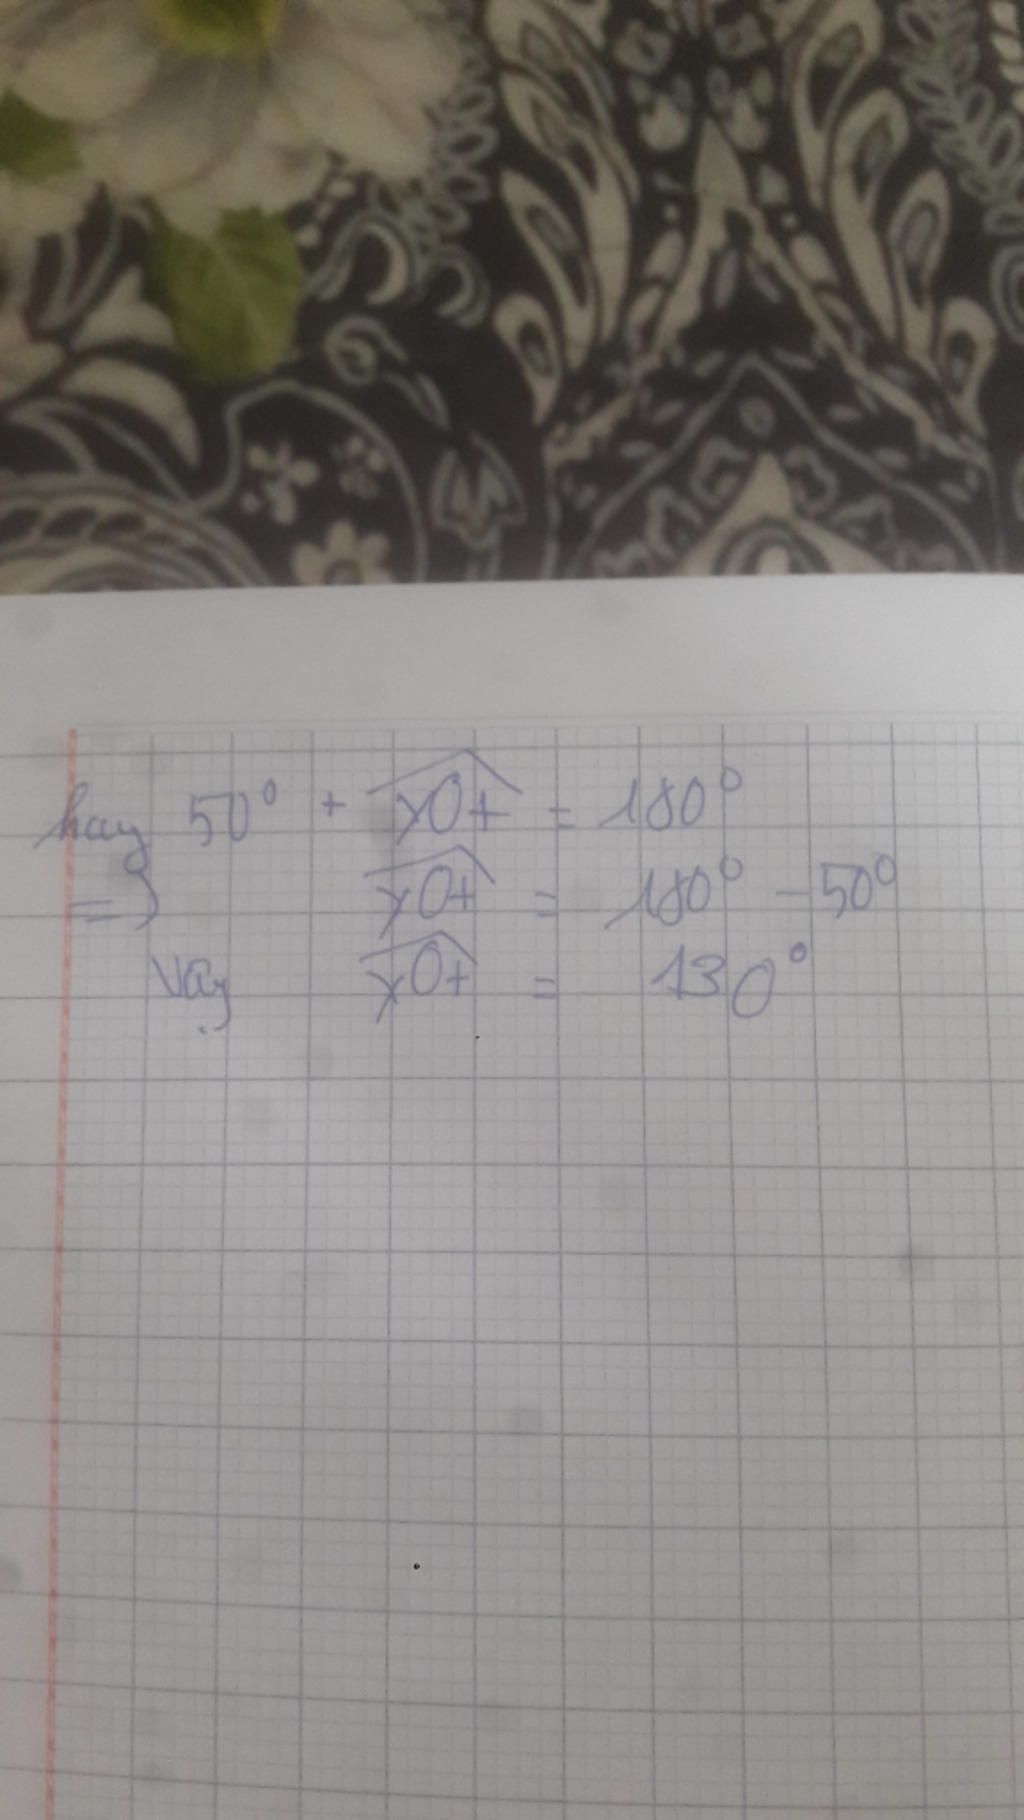 hay 50° + yOt = 180°
=> yOt = 180° - 50°
Vậy yOt = 130°